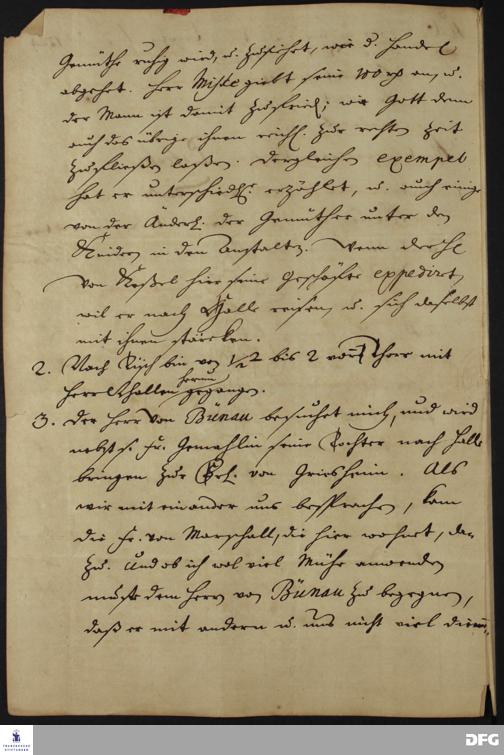 Gemüthe ruhig wird, u. zusiehet, wie d. Handel
abgehet. Herr Miske giebt seine 100 rh an, u.
der Mann ist damit zufried; wie Gott denn
auch das übrige ihnen reichl. zur rechten Zeit
zufließen laßen. Dergleichen exempel
hat er unterschiedl. erzählet, u. auch einige
von der Änderl. der Gemüther unter den
Kindern in den Anstalten. Wenn der H
von Keßel hier seine Geschäfte expediret,
wil er nach Halle reisen, u. sich daselbst
mit ihnen stärcken.
2. Nach Tisch bin von ½2 bis 2 vorm Thore mit
Herrn herum gegangen.
3. Der Herr von Bünau besuchet mich, und wird
nebst s. Fr. Gemahlin seine Tochter nach Halle
bringen zur Frl. von Griesheim. Als
wir mit einander uns besprachen, kam
die Fr. von Marschall, die hier wohnet, da-
zu. Und ob ich wol viel Mühe anwenden
muste dem Herrn von Bünau zu begegnen,
daß er mit andern u. uns nicht viel
FRANCKESCHE
STIFTUNGEN
DFG